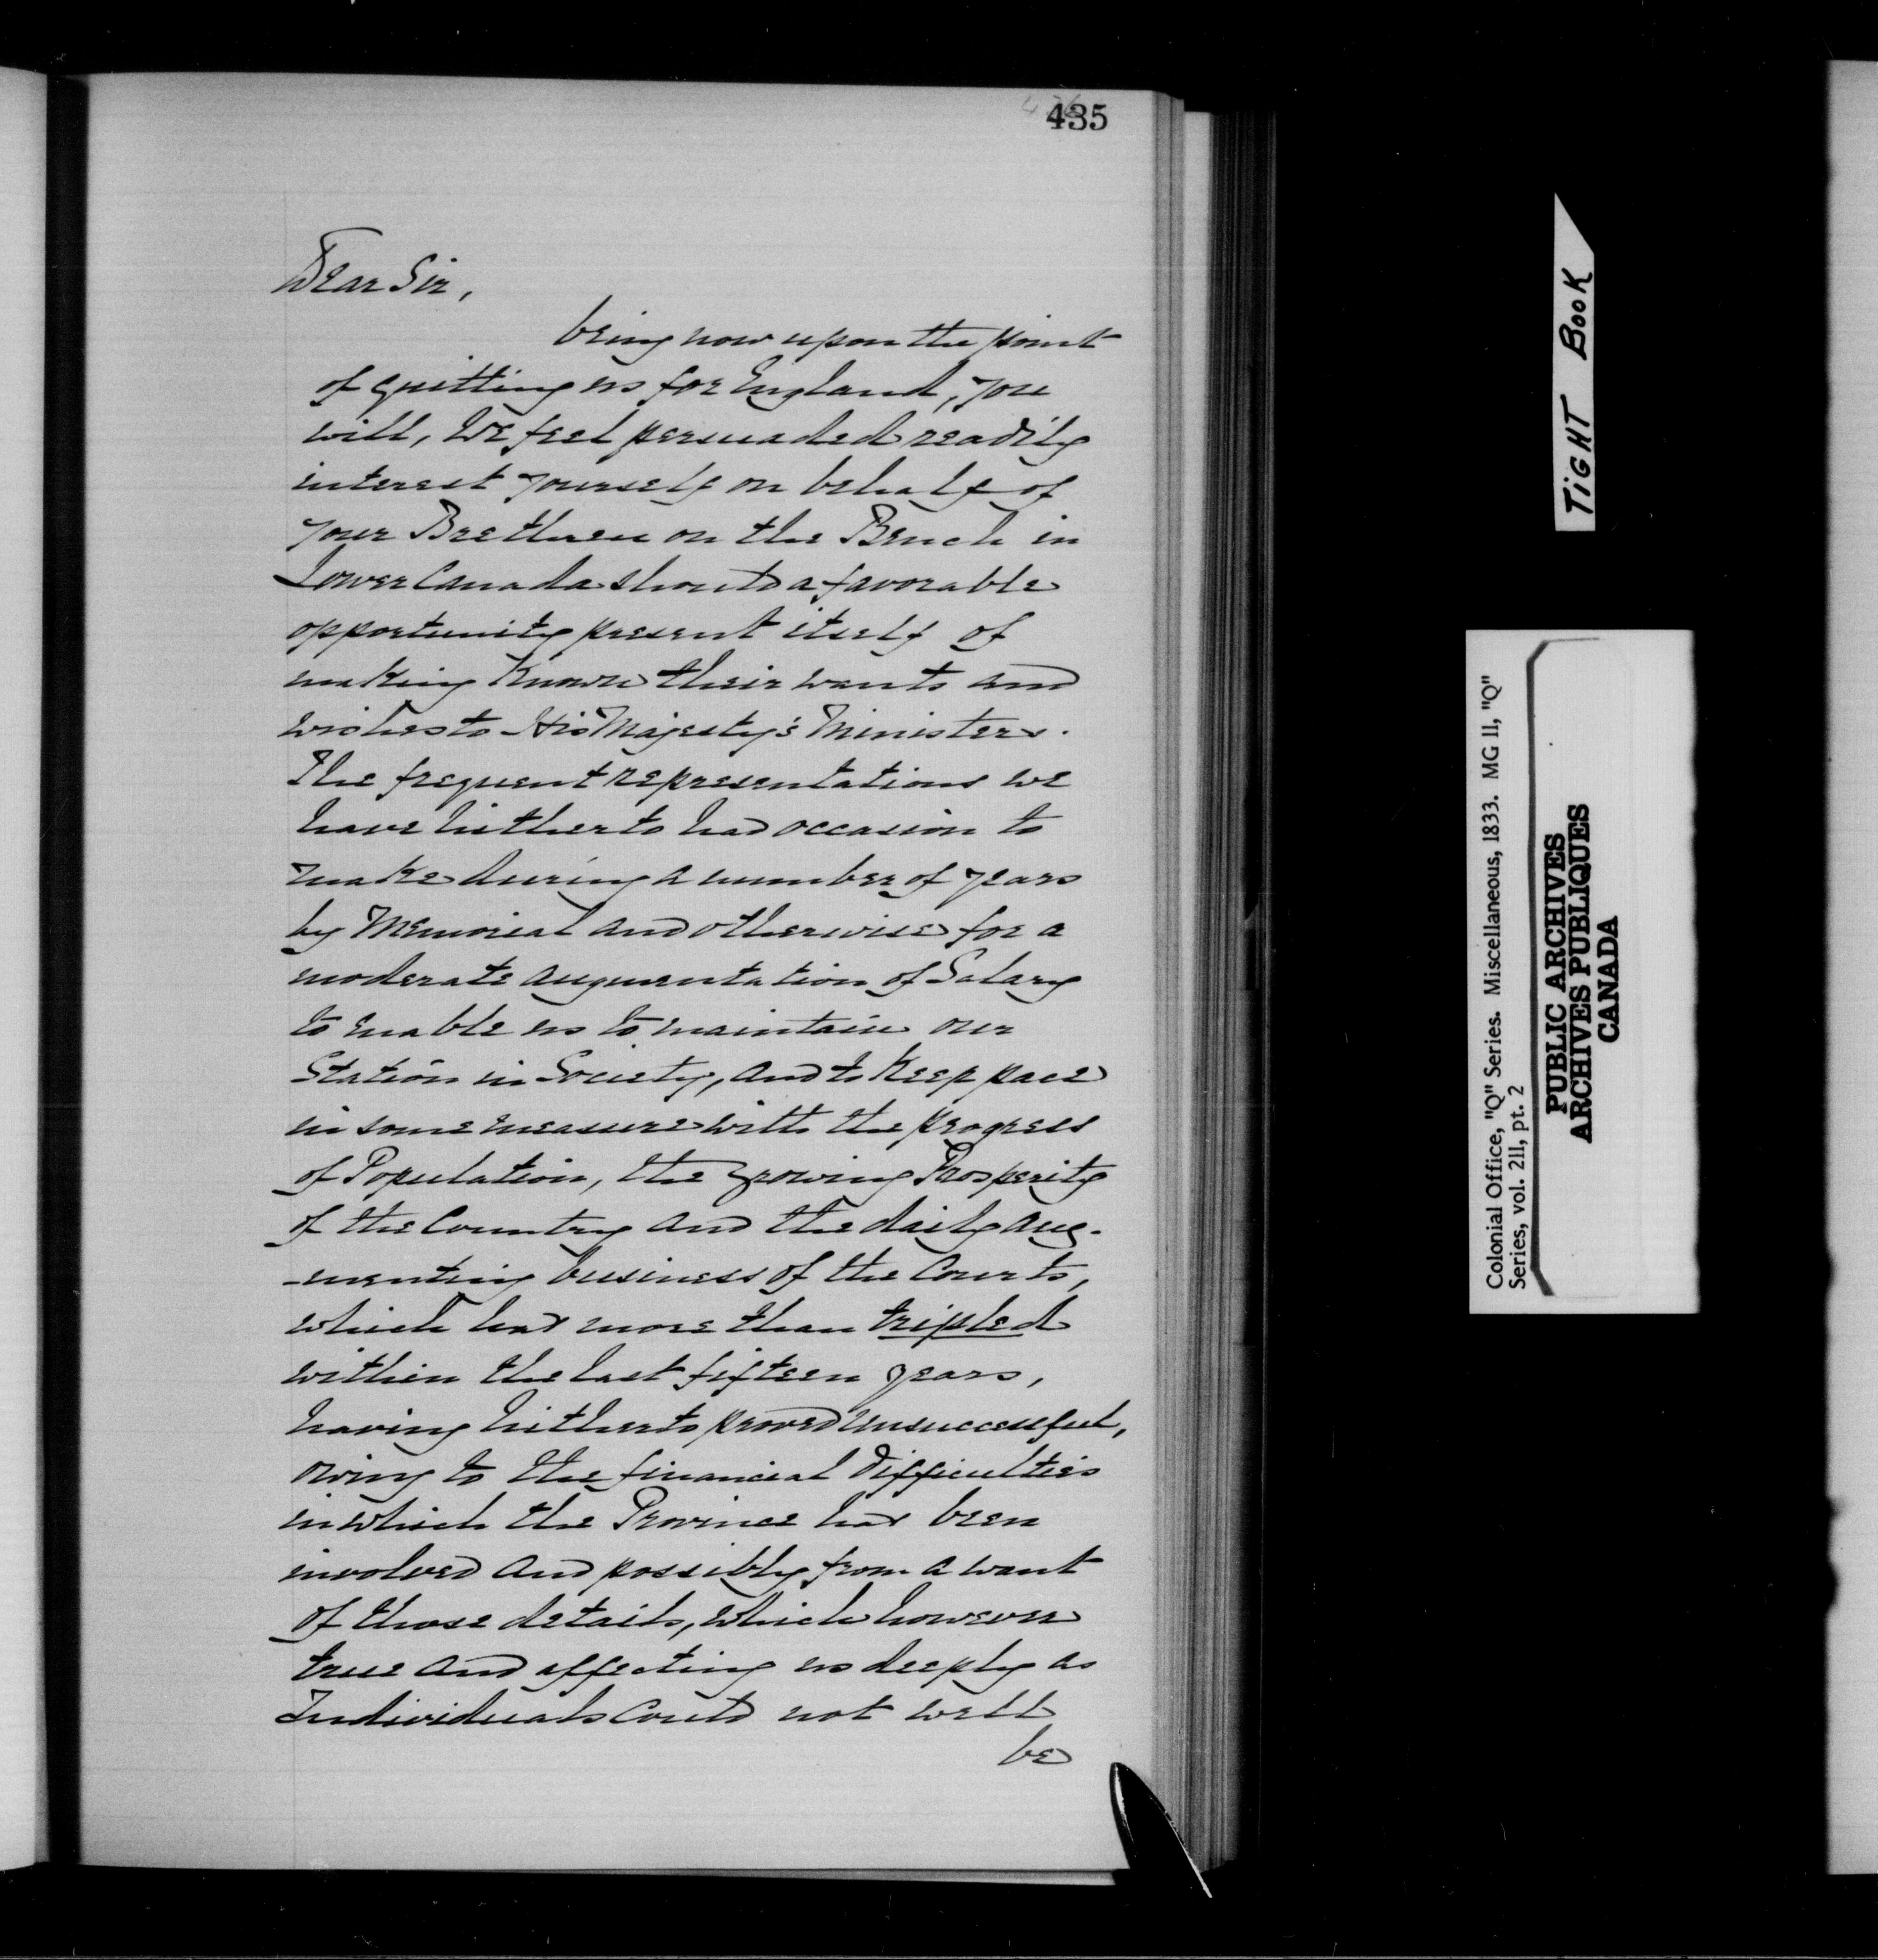 435
Dear Sir,
being now upon the point
of quitting us for England, you
will, we feel persuaded readily
interest yourself on behalf of
your Brethren on the Bench in
Lower Canada should a favorable
opportunity present itself of
making known their wants and
wishes to His Majesty's Ministers.
The frequent representations we
have hitherto had occasion to
make during a number of years
by Memorial and otherwise for a
moderate augmentation of Salary
to enable us to maintain our
Station in Society, and to keep pace
in some measure with the progress
of Population, the growing Prosperity
of the Country and the daily aug-
-menting business of the Courts,
which has more than tripled
within the last fifteen years,
having hitherto proved unsuccessful,
owing to the financial difficulties
in which the Province has been
involved and possibly from a want
of those details, which however
true and affecting us deeply as
Individuals could not well
be
TIGHT BOOK
Colonial Office, "Q" Series. Miscellaneous, 1833. MG 11, "Q"
Series, vol. 211, pt. 2
PUBLIC ARCHIVES
ARCHIVES PUBLIQUES
CANADA